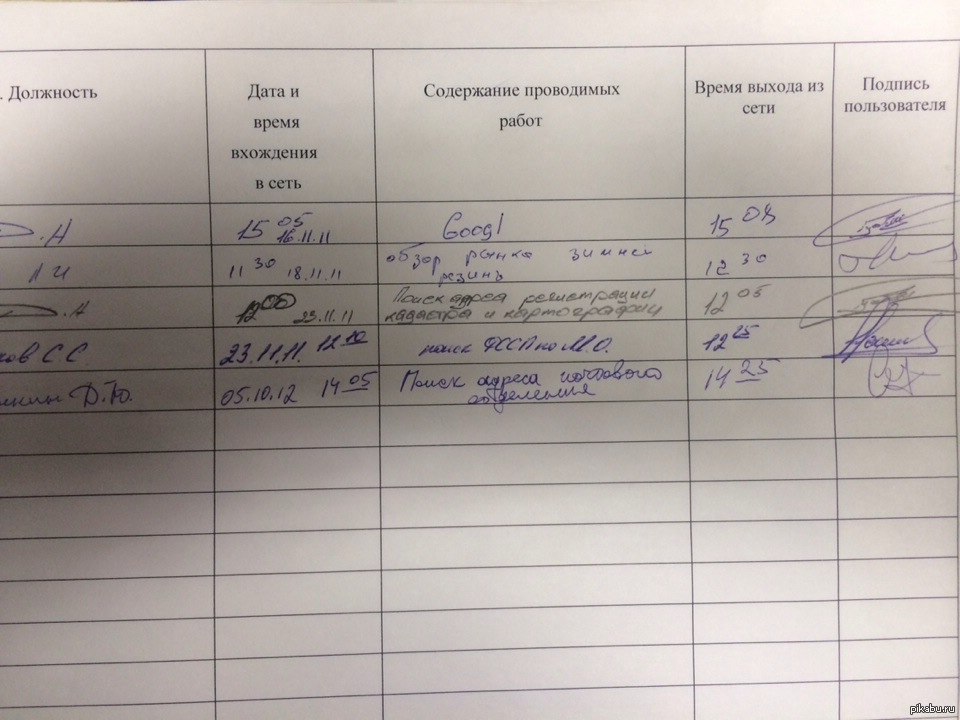 . Должность
Дата и
время
вхождения
в сеть
Содержание проводимых
работ
Время выхода из
сети
Подпись
пользователя
.А
15 05
16.11.11
Googl
15 08
11 30 18.11.11
обзор рынка зимней
резины
12 30
.А
12 00 23.11.11
Поиск адреса регистрации
кадастра и картографии
12 05
ков С.С.
23.11.11. 12 20
поиск ФССП по М.О.
12 25
Д.Ю.
05.10.12 14 05
Поиск адреса почтового
отделения
14 25
pikabu.ru